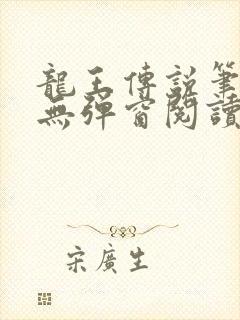 龍王傳說筆
無彈窗閱讀
宋廣生